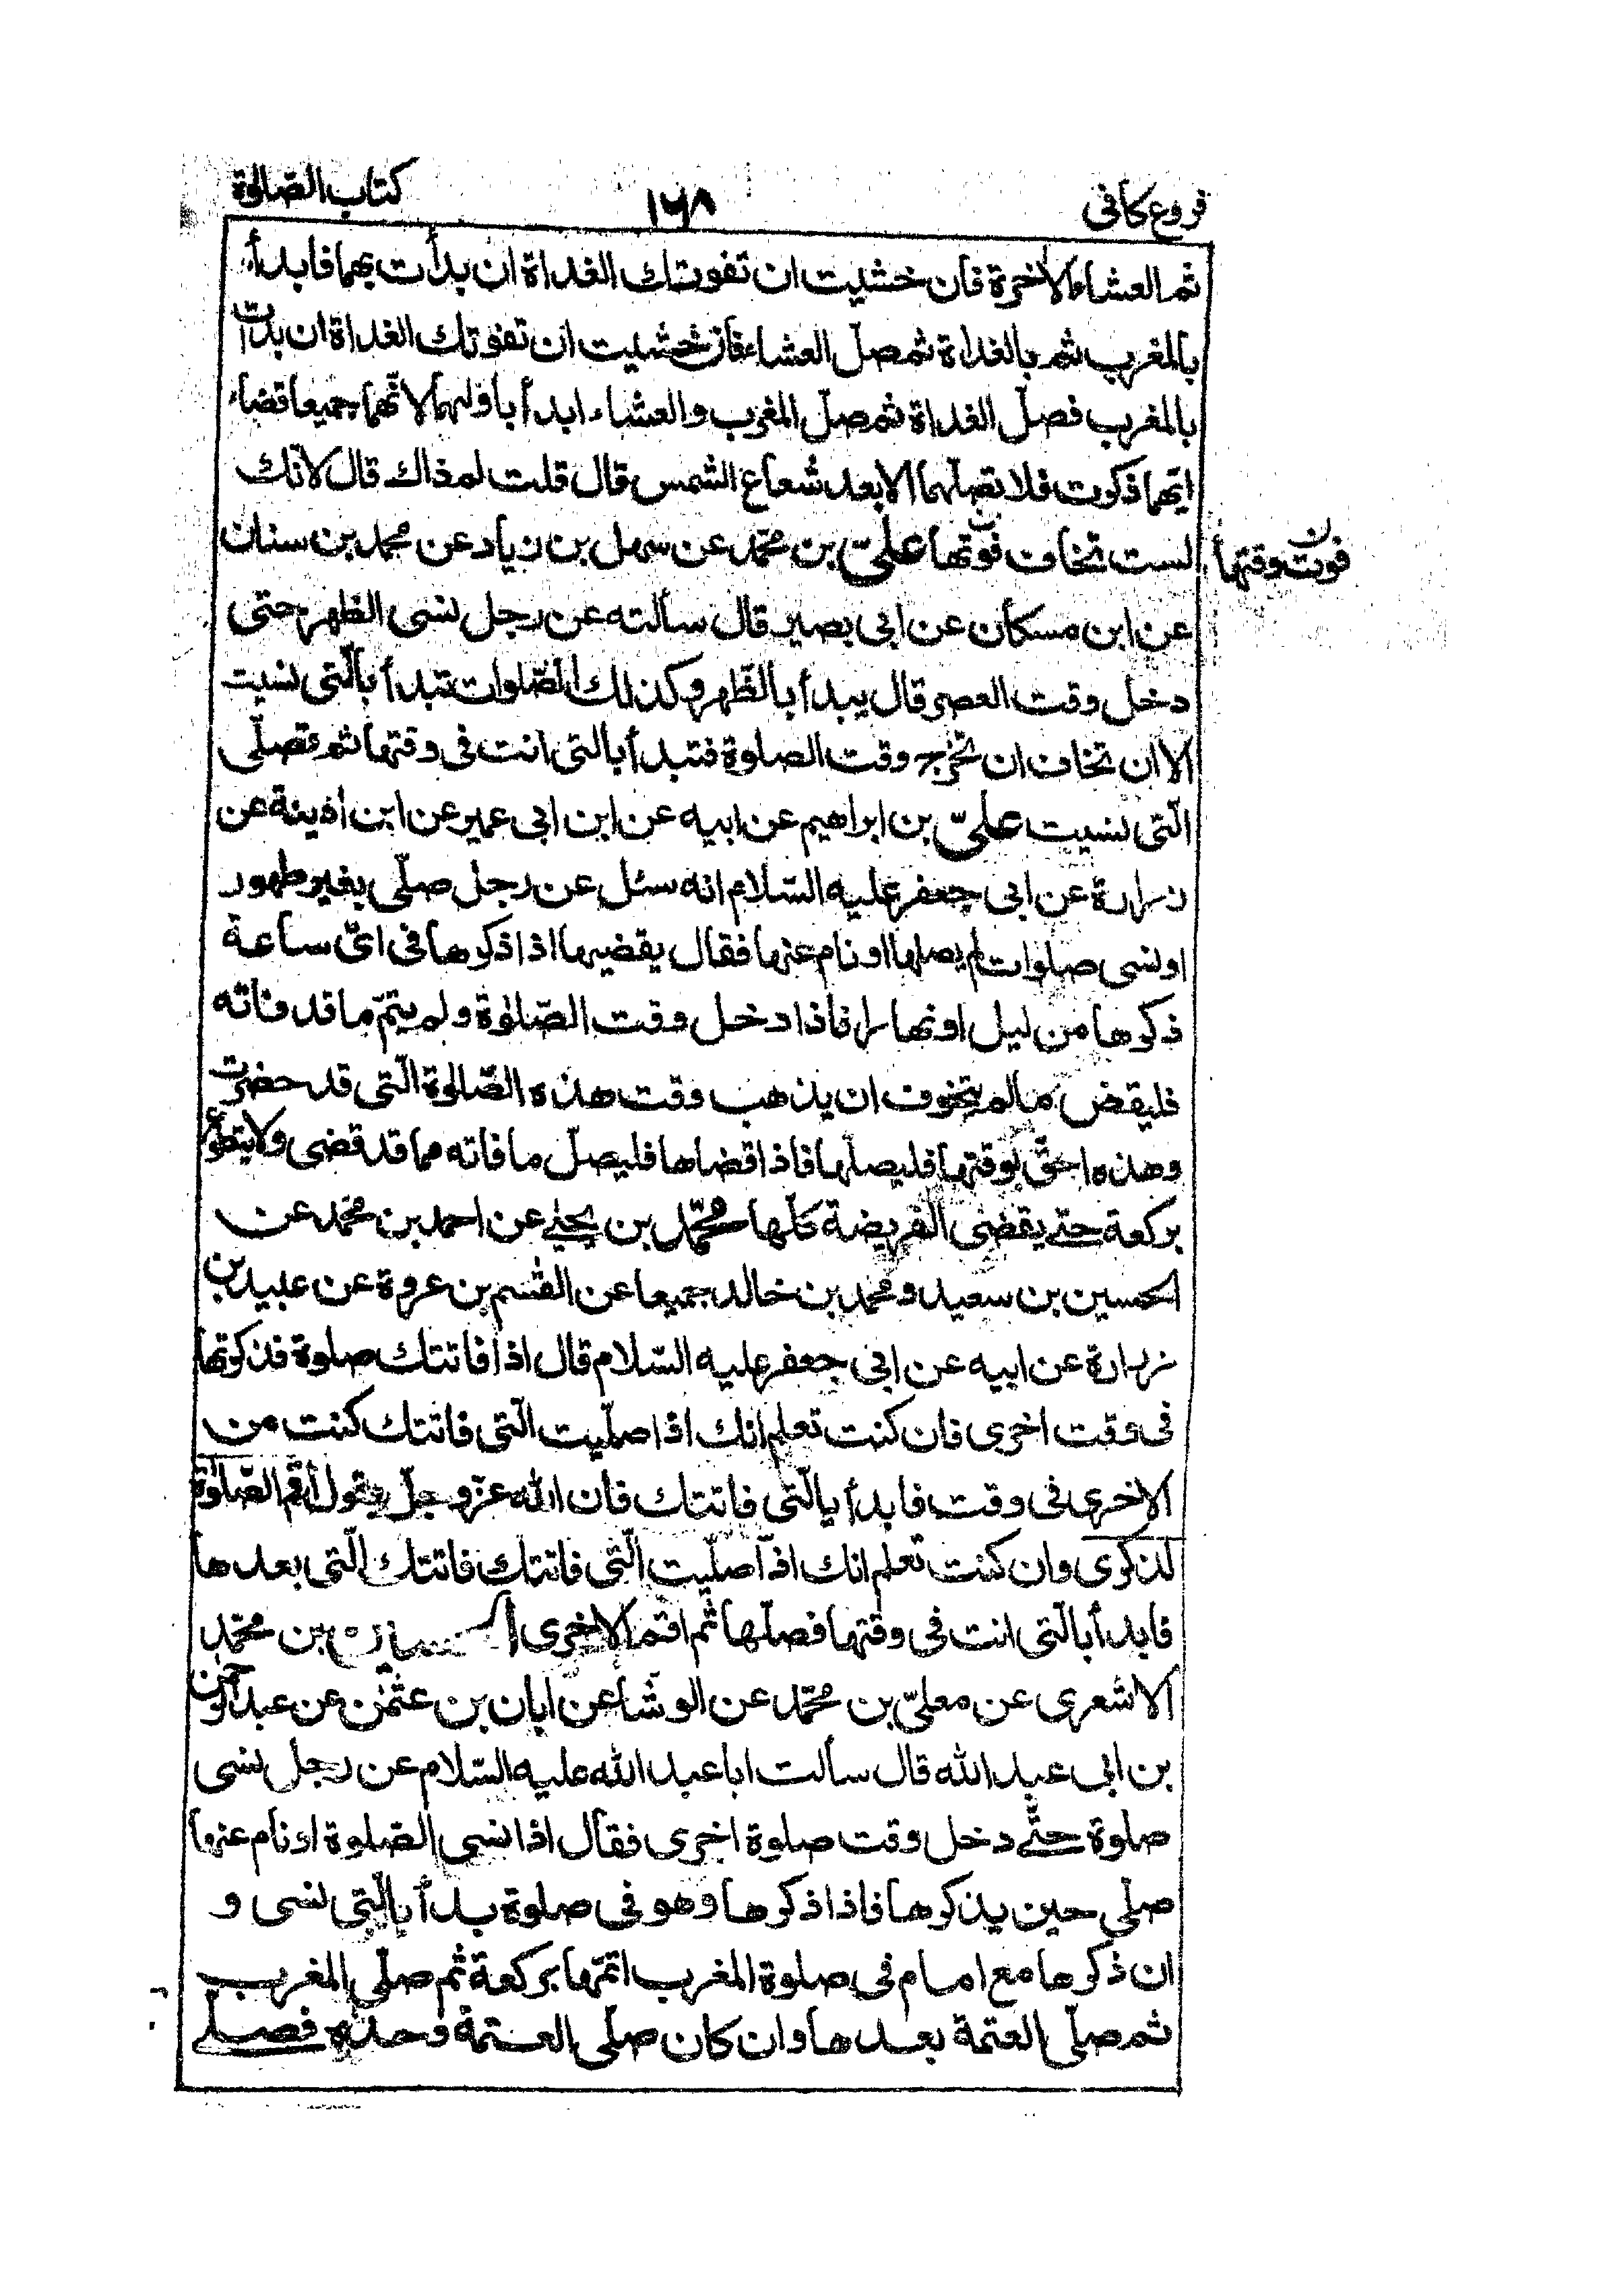 فروع كافى ١٦٨ كتاب الصّلوة
ثم العشاء الاخرة فان خشيت ان تفوتك الغداة ان بدأت بهما فابدأ
بالمغرب ثم بالغداة ثم صل العشاء فان خشيت ان تفوتك الغداة ان بدأت
بالمغرب فصلّ الغداة ثم صلّ المغرب والعشاء ابدأ باولهما لانّهما جميعا قضاء
ايّهما ذكرت فلا تصلّهما الا بعد شعاع الشمس قال قلت لم ذاك قال لانّك
لست تخاف فوتها علىّ بن محمّد عن سهل بن زياد عن محمد بن سنان
فوت وقتها ن
عن ابن مسكان عن ابى بصير قال سألته عن رجل نسى الظهر حتى
دخل وقت العصر قال يبدأ بالظّهر وكذلك الصّلوات تبدأ بالّتى نسيت
الا ان تخاف ان تخرج وقت الصلوة فتبدأ بالتى انت فى وقتها ثم تصلّى
الّتى نسيت علىّ بن ابراهيم عن ابيه عن ابن ابى عمير عن ابن اذينة عن
زرارة عن ابى جعفر عليه السّلام انه سئل عن رجل صلّى بغير طهور
او نسى صلوات لم يصلها او نام عنها فقال يقضيها اذا ذكرها فى اىّ ساعة
ذكرها من ليل او نهار فاذا دخل وقت الصّلوة ولم يتمّ ما قد فاته
فليقض ما لم يتخوف ان يذهب وقت هذه الصّلوة الّتى قد حضرت
وهذه احقّ بوقتها فليصلّها فاذا قضاها فليصلّ ما فاته مما قد قضى ولا يتطوّع
بركعة حتّى يقضى الفريضة كلّها محمّد بن يحيى عن احمد بن محمّد عن
الحسين بن سعيد ومحمد بن خالد جميعا عن القٰسم بن عروة عن عبيد بن
زرارة عن ابيه عن ابى جعفر عليه السّلام قال اذا فاتتك صلوة فذكرتها
فى وقت اخرى فان كنت تعلم انك اذا صلّيت الّتى فاتتك كنت من
الاخرى فى وقت فابدأ بالّتى فاتتك فان الله عزّ وجلّ يقول أقم الصّلوٰة
لذكرى وان كنت تعلم انك اذا صلّيت الّتى فاتتك فاتتك الّتى بعدها
فابدأ بالّتى انت فى وقتها فصلّها ثم اقم الاخرى بن محمّد
الاشعرى عن معلّى بن محمّد عن الوشّا عن ابان بن عثمٰن عن عبد الرحمٰن
بن ابى عبد الله قال سألت ابا عبد الله عليه السّلام عن رجل نسى
صلوة حتّى دخل وقت صلوة اخرى فقال اذا نسى الصّلوة او نام عنها
صلّى حين يذكرها فاذا ذكرها وهو فى صلوة بدأ بالّتى نسى و
ان ذكرها مع امام فى صلوة المغرب اتمّها بركعة ثم صلّى المغرب
ثم صلّى العتمة بعدها وان كان صلّى العتمة وحده فصلّى